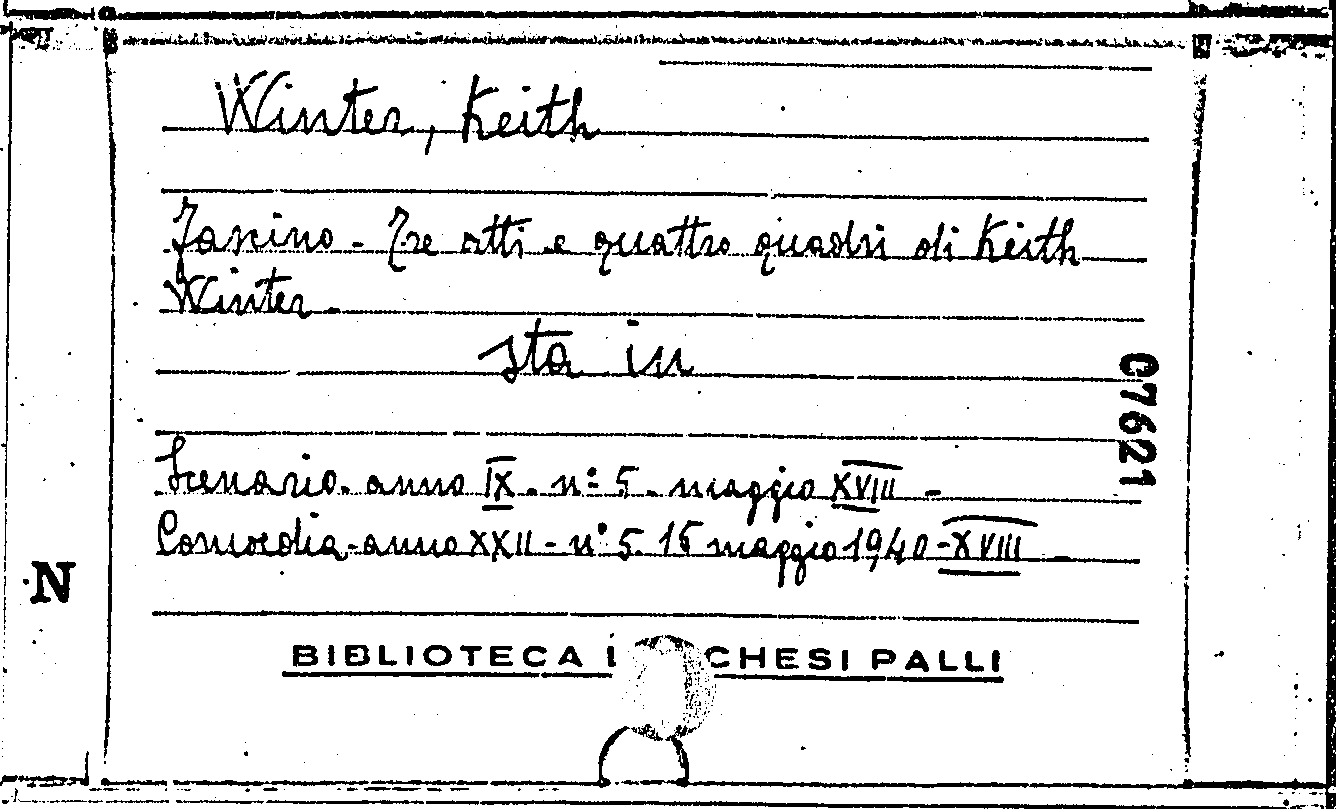 Winter, Keith
Fascino - Tre atti e quattro quadri di Keith
Winter -
sta in
07621
Scenario - anno IX - n° 5 - maggio XVIII -
Comoedia - anno XXII - n° 5. 15 maggio 1940 - XVIII -
N
BIBLIOTECA L CHESI PALLI